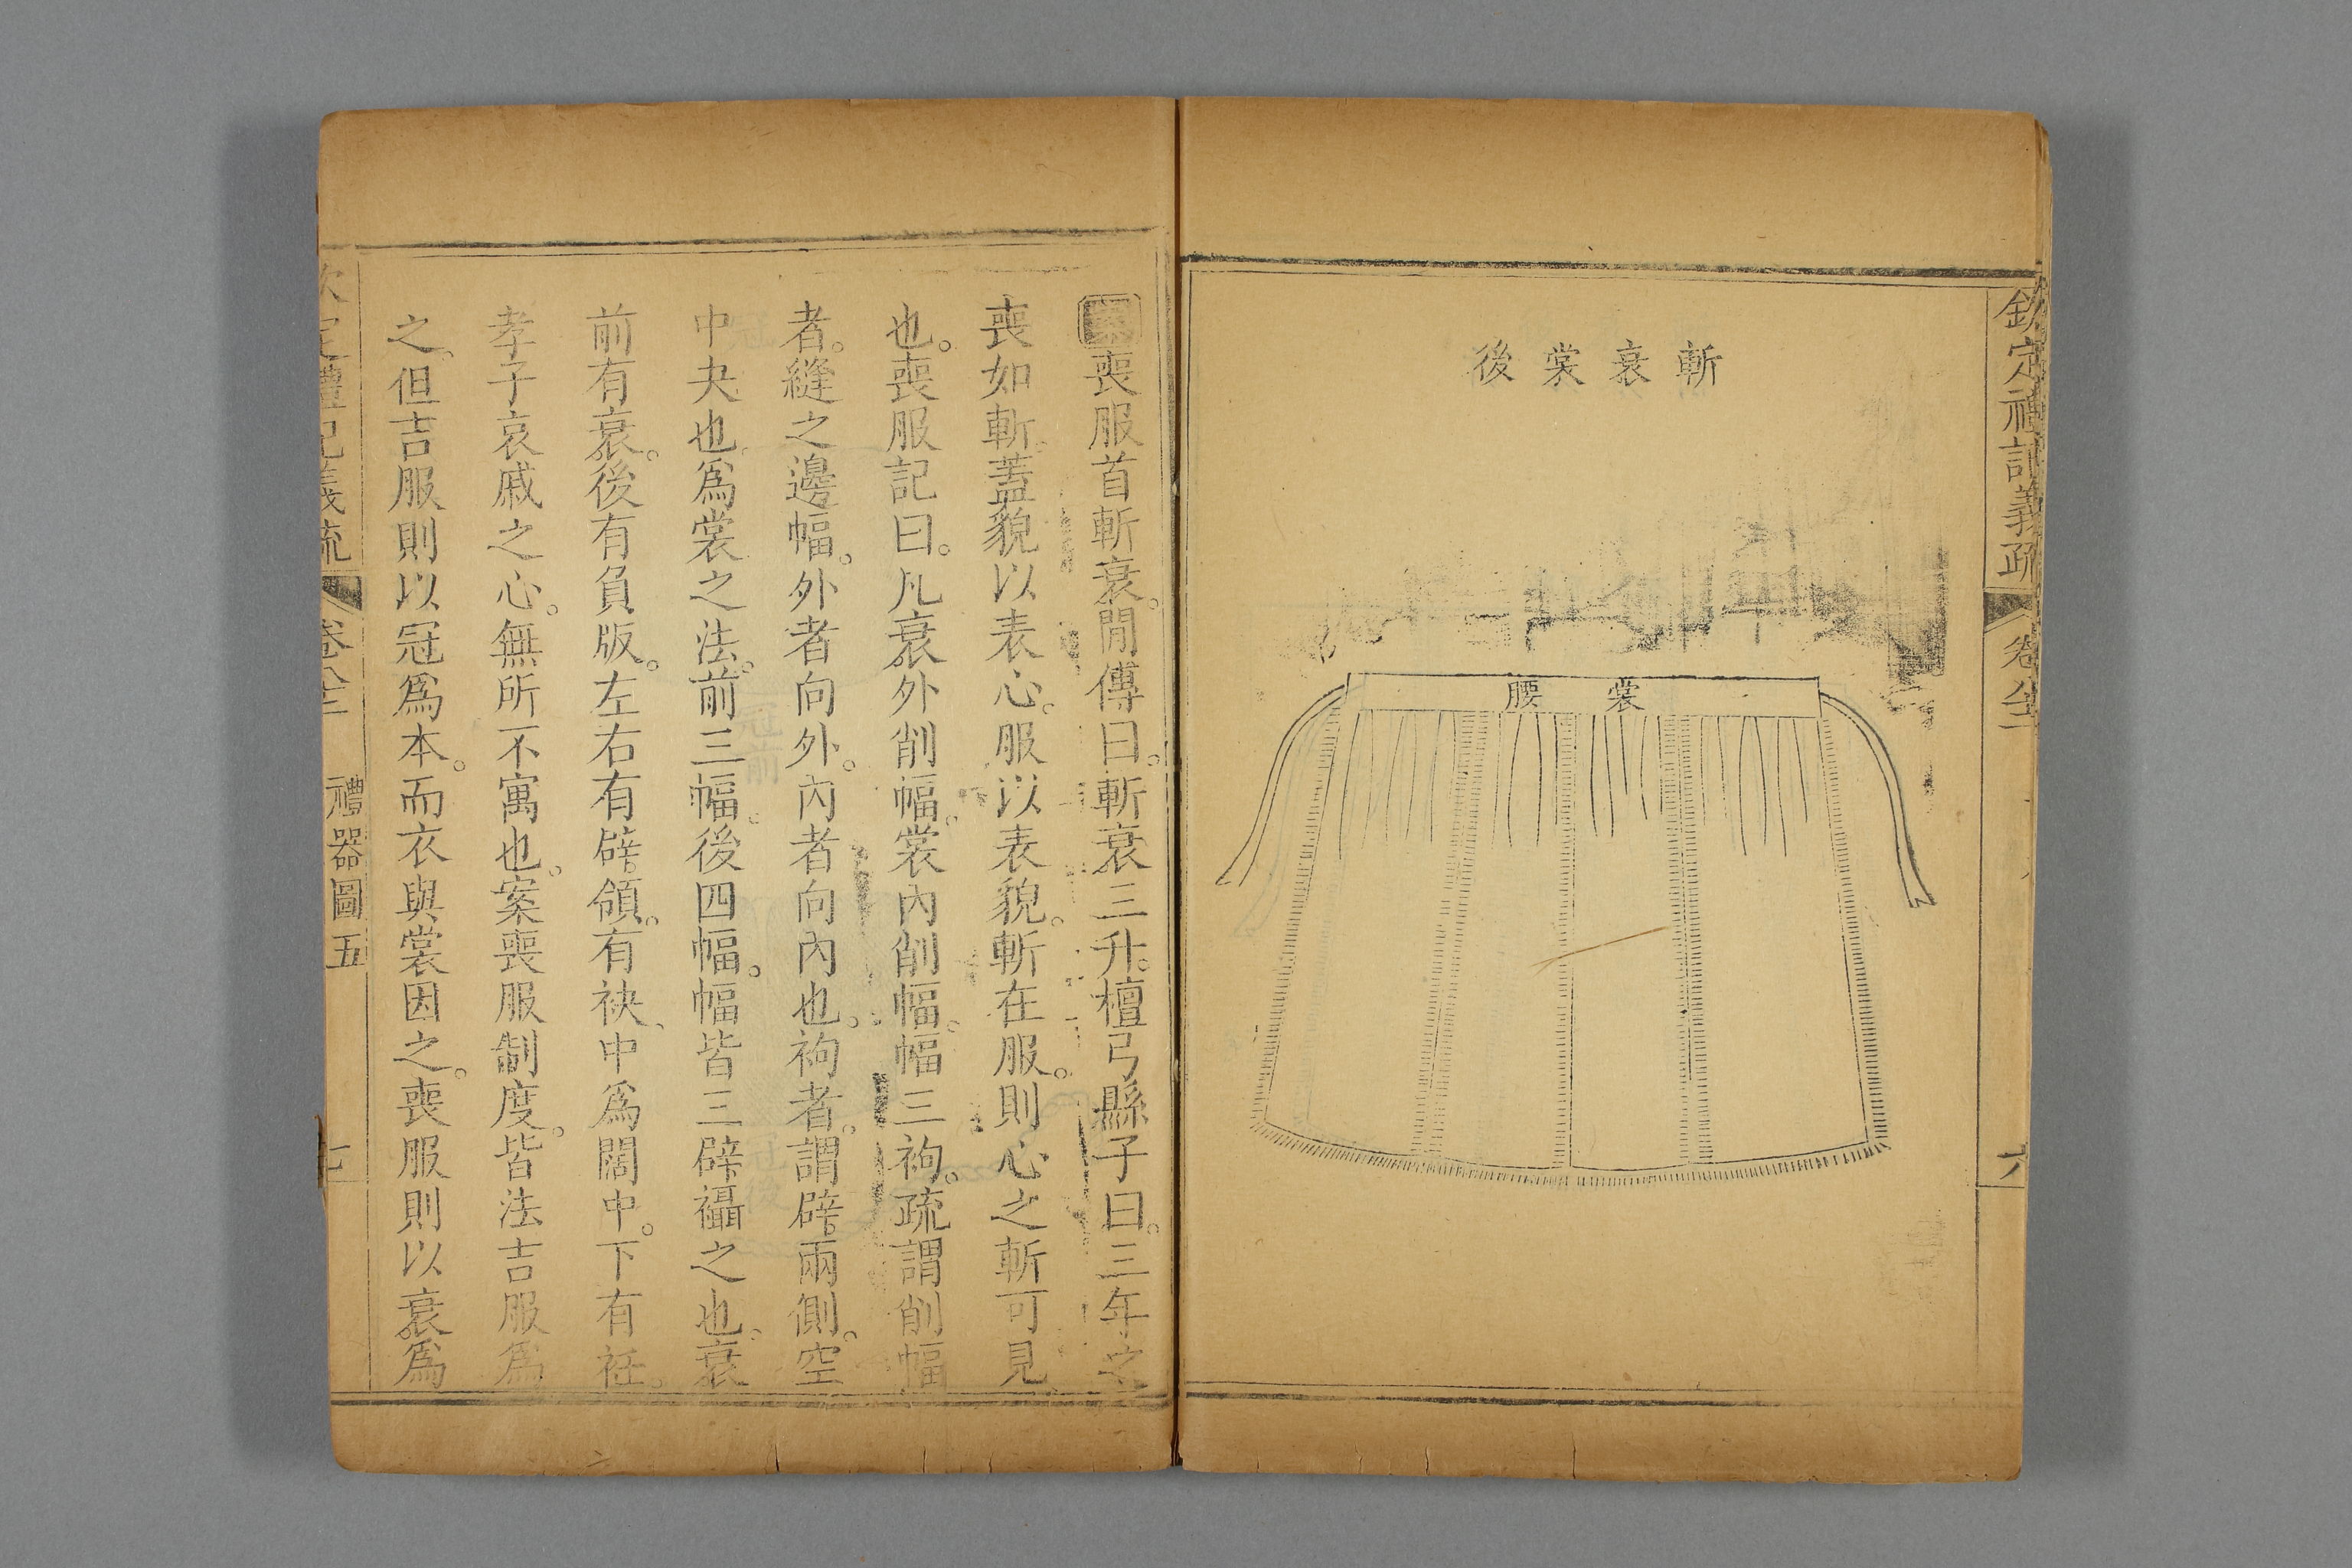 欽定禮記義疏 卷 六
斬衰裳後
裳腰
案喪服首斬衰。閒傳曰。斬衰三升。檀弓縣子曰。三年之
喪如斬。蓋貌以表心。服以表貌。斬在服。則心之斬可見
也。喪服記曰。凡衰外削幅。裳內削幅。幅三袧。疏謂削幅
者。縫之邊幅。外者向外。內者向內也。袧者。謂辟兩側。空
中央也。為裳之法。前三幅。後四幅。幅皆三辟襵之也。衰
前有衰。後有負版。左右有辟領。有袂、中為闊中。下有衽。
孝子哀戚之心。無所不寓也。案喪服制度。皆法吉服為
之。但吉服則以冠為本。而衣與裳因之。喪服則以衰為
欽定禮記義疏 卷八十二 禮器圖五 七